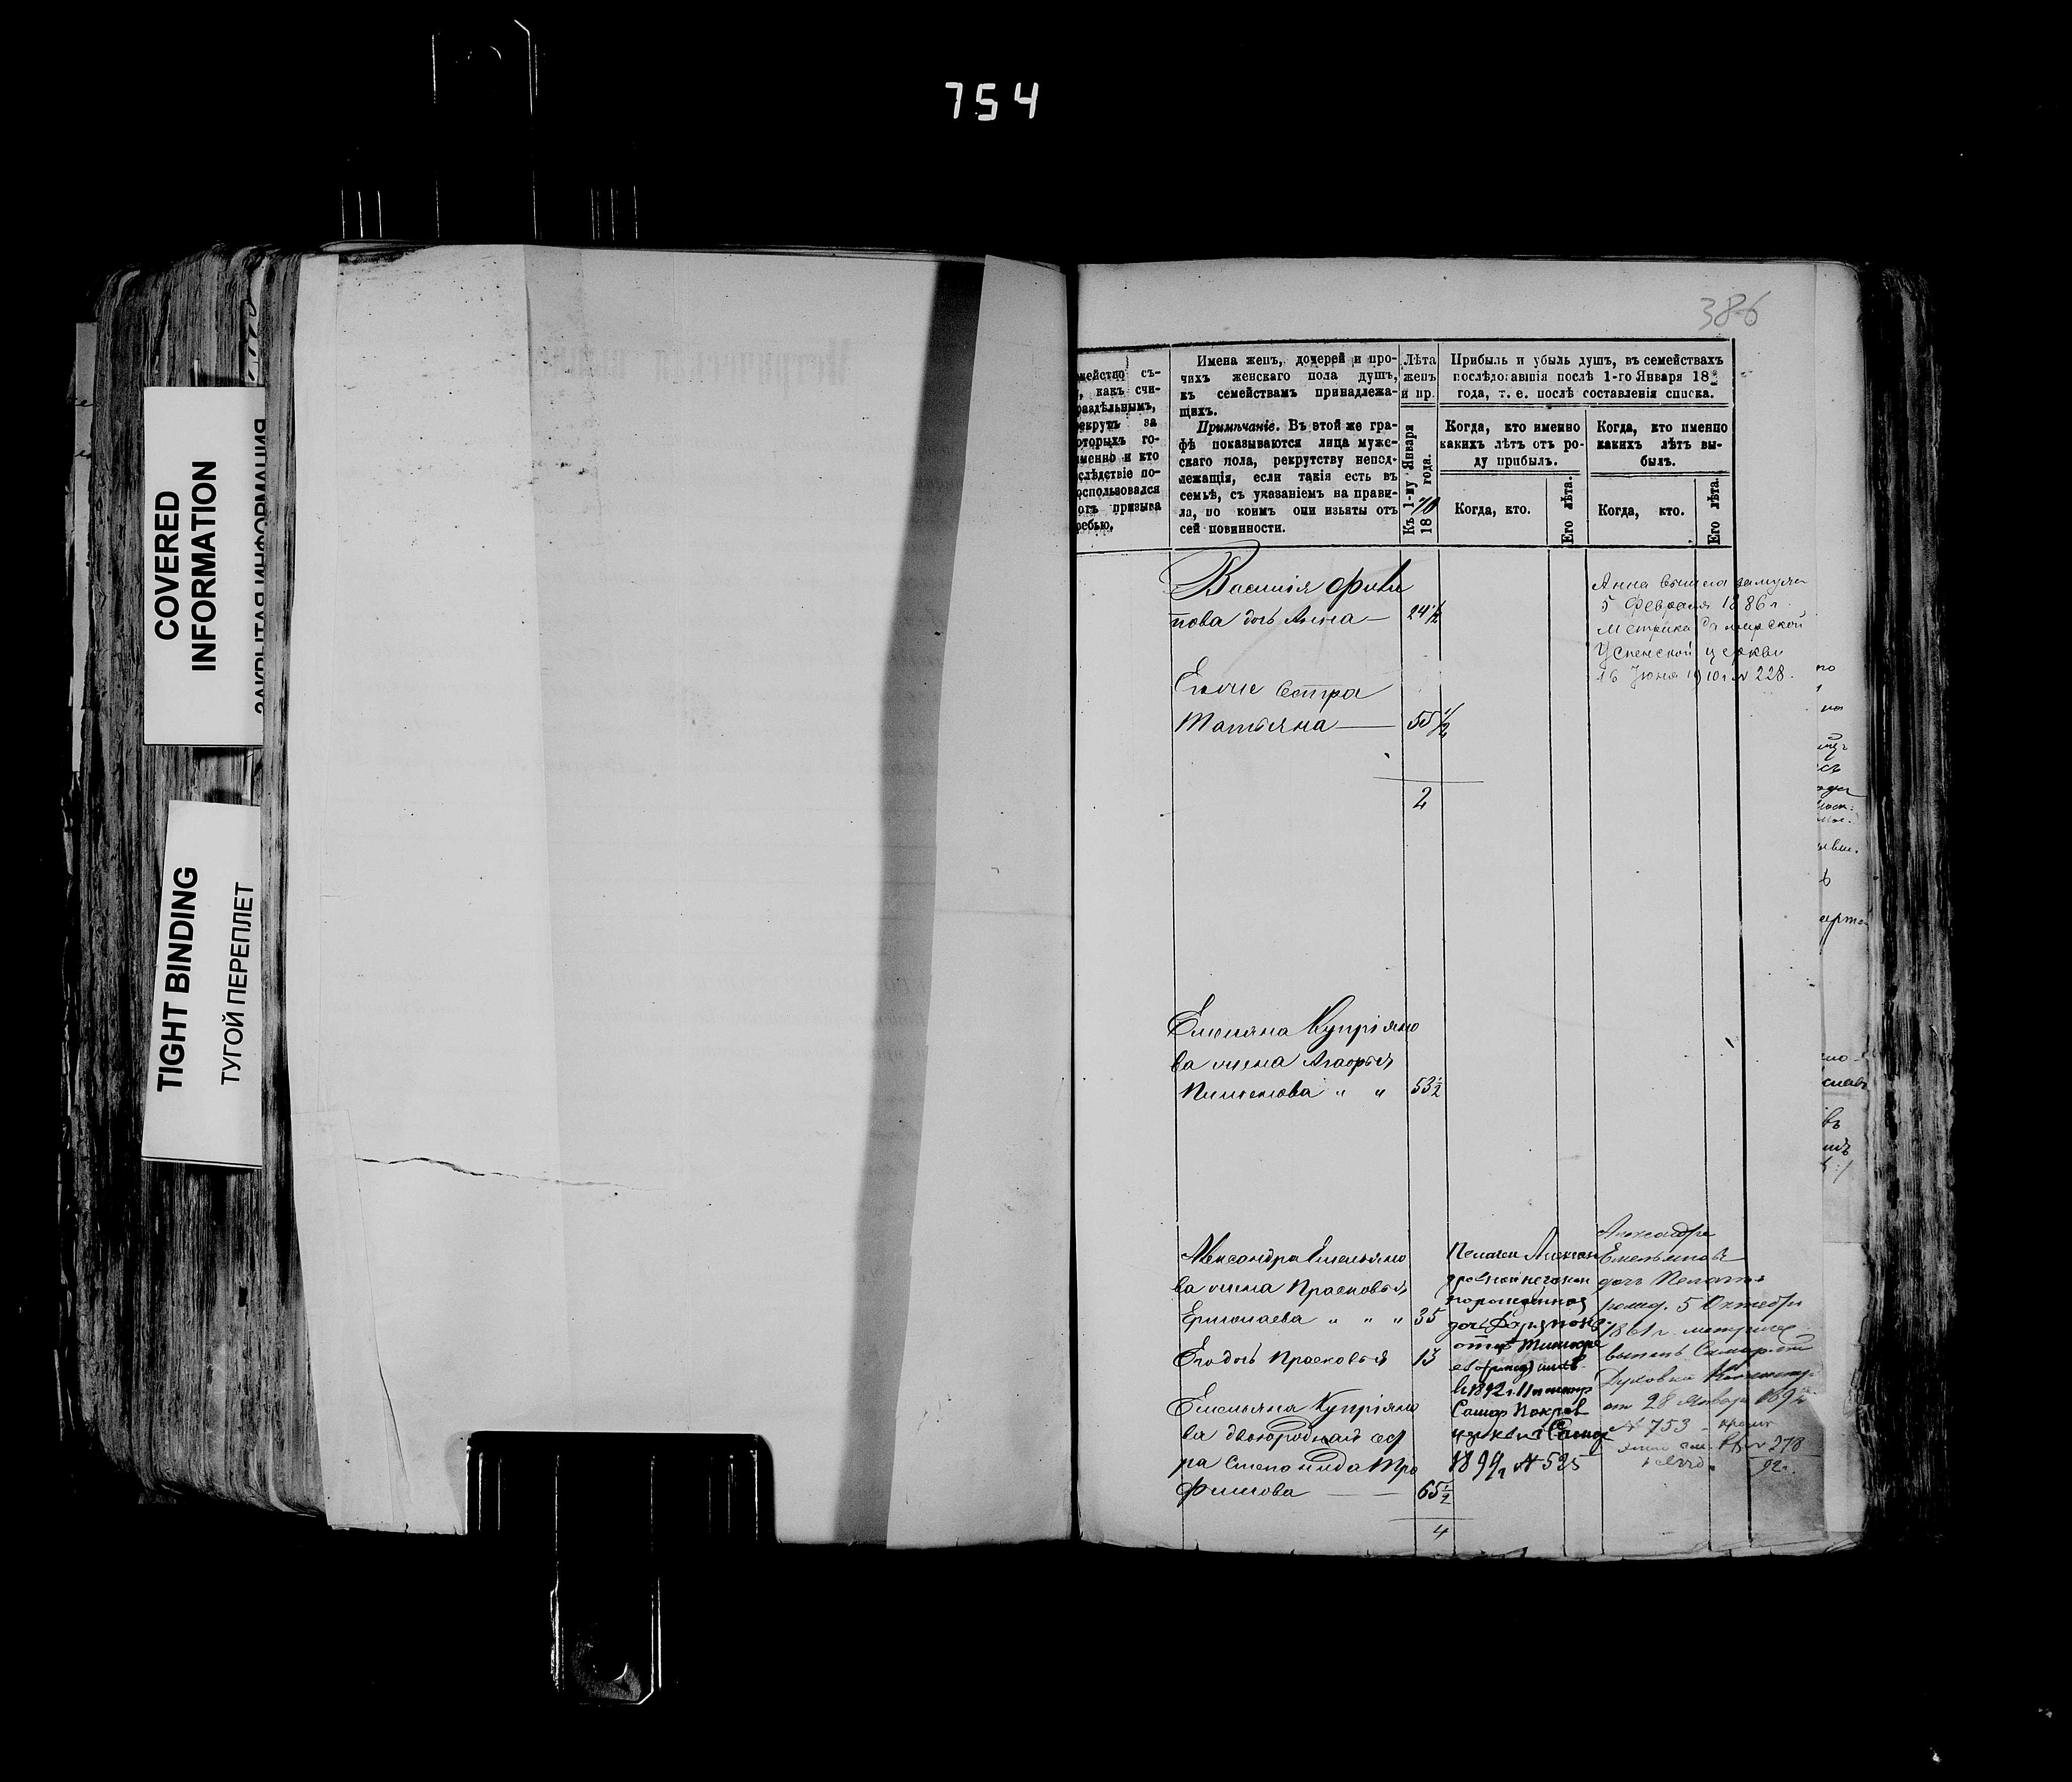 754
COVERED
INFORMATION
ЗАКРЫТАЯ ИНФОРМАЦИЯ
TIGHT BINDING
ТУГОЙ ПЕРЕПЛЕТ
386
мейство съ-
, какъ счи-
раздѣльнымъ,
рекрутъ за
оторыхъ го-
именно и кто
слѣдствіе по-
оспользовался
отъ призыва
ребью,
Имена женъ, дочерей и про-
чихъ женскаго пола душъ,
къ семействамъ принадлежа-
щихъ.
Примѣчаніе. Въ этой же гра-
фѣ показываются лица муже-
скаго пола, рекрутству непод-
лежащія, если такія есть въ
семьѣ, съ указаніемъ на прави-
ла, по коимъ они изьяты отъ
сей повинности.
Лѣта
женъ
и пр.
Къ 1-му Января
18 70 года.
Прибыль и убыль душъ, въ семействахъ
послѣдовавшія послѣ 1-го Января 18
года, т. е. послѣ составленія списка.
Когда, кто именно
какихъ лѣтъ отъ ро-
ду прибылъ.
Когда, кто именно
какихъ лѣтъ вы-
былъ.
Когда, кто.
Его лѣта.
Когда, кто.
Его лѣта.
Василія Фили
пова дочь Анна — 24 1/2
Анна вышла замужъ
5 Февраля 1886 г.
Метрика Самарской
Успенской церкви
16 Іюня 1910 г. № 228.
Его же Сестра
Татьяна — 55 1/2
2
Емельяна Купріяно
ва жена Агафья
Пименова " " 53 1/2
Александра Емельяно
ва жена Прасковья
Ермолаева " " " 35
Его дочь Прасковья 13
Емельяна Купріяно
ва двоюродная сест
ра Степанида Тро
фимова — — 65 1/2
4
Пелагеи Алексан
дровной незакон
норожденная
дочь
в 1892 г.
Самар Покров
церкви Самар
1899 г № 525
Александра
Емельянова
дочь Пелагея
рожд. 5 Октября
1861 г.
Самарской
Духовной Консистор
от 28 Января 1892
№ 753
№ 278
92 г.